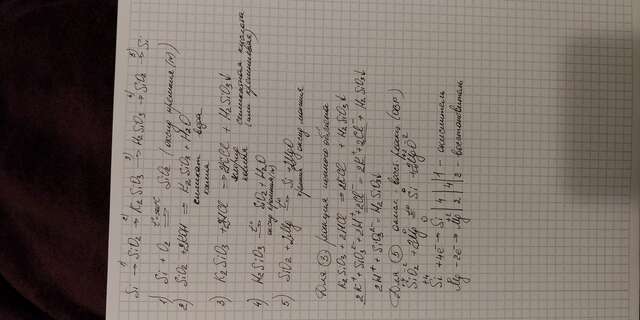 Si →¹⁾ SiO₂ →²⁾ K₂SiO₃ →³⁾ H₂SiO₃ →⁴⁾ SiO₂ →⁵⁾ Si
1) Si + O₂ = SiO₂ (оксид кремния (IV))
2) SiO₂ + 2KOH = K₂SiO₃ + H₂O
силикат калия вода
3) K₂SiO₃ + 2HCl = 2KCl + H₂SiO₃↓
хлорид калия силикатная кислота (или кремниевая)
4) H₂SiO₃ =t° SiO₂ + H₂O
оксид кремния (IV)
5) SiO₂ + 2Mg =t° Si + 2MgO
кремний оксид магния
Для ③ реакция ионного обмена
K₂SiO₃ + 2HCl = 2KCl + H₂SiO₃↓
2K⁺ + SiO₃²⁻ + 2H⁺ + 2Cl⁻ = 2K⁺ + 2Cl⁻ + H₂SiO₃↓
2H⁺ + SiO₃²⁻ = H₂SiO₃↓
Для ⑤ окисл.-восст. (ОВР)
SiO₂ + 2Mg = Si + 2MgO
Si + 4e → Si | 4 | 4 | 1 - окислитель
Mg - 2e → Mg | 2 | - восстановитель